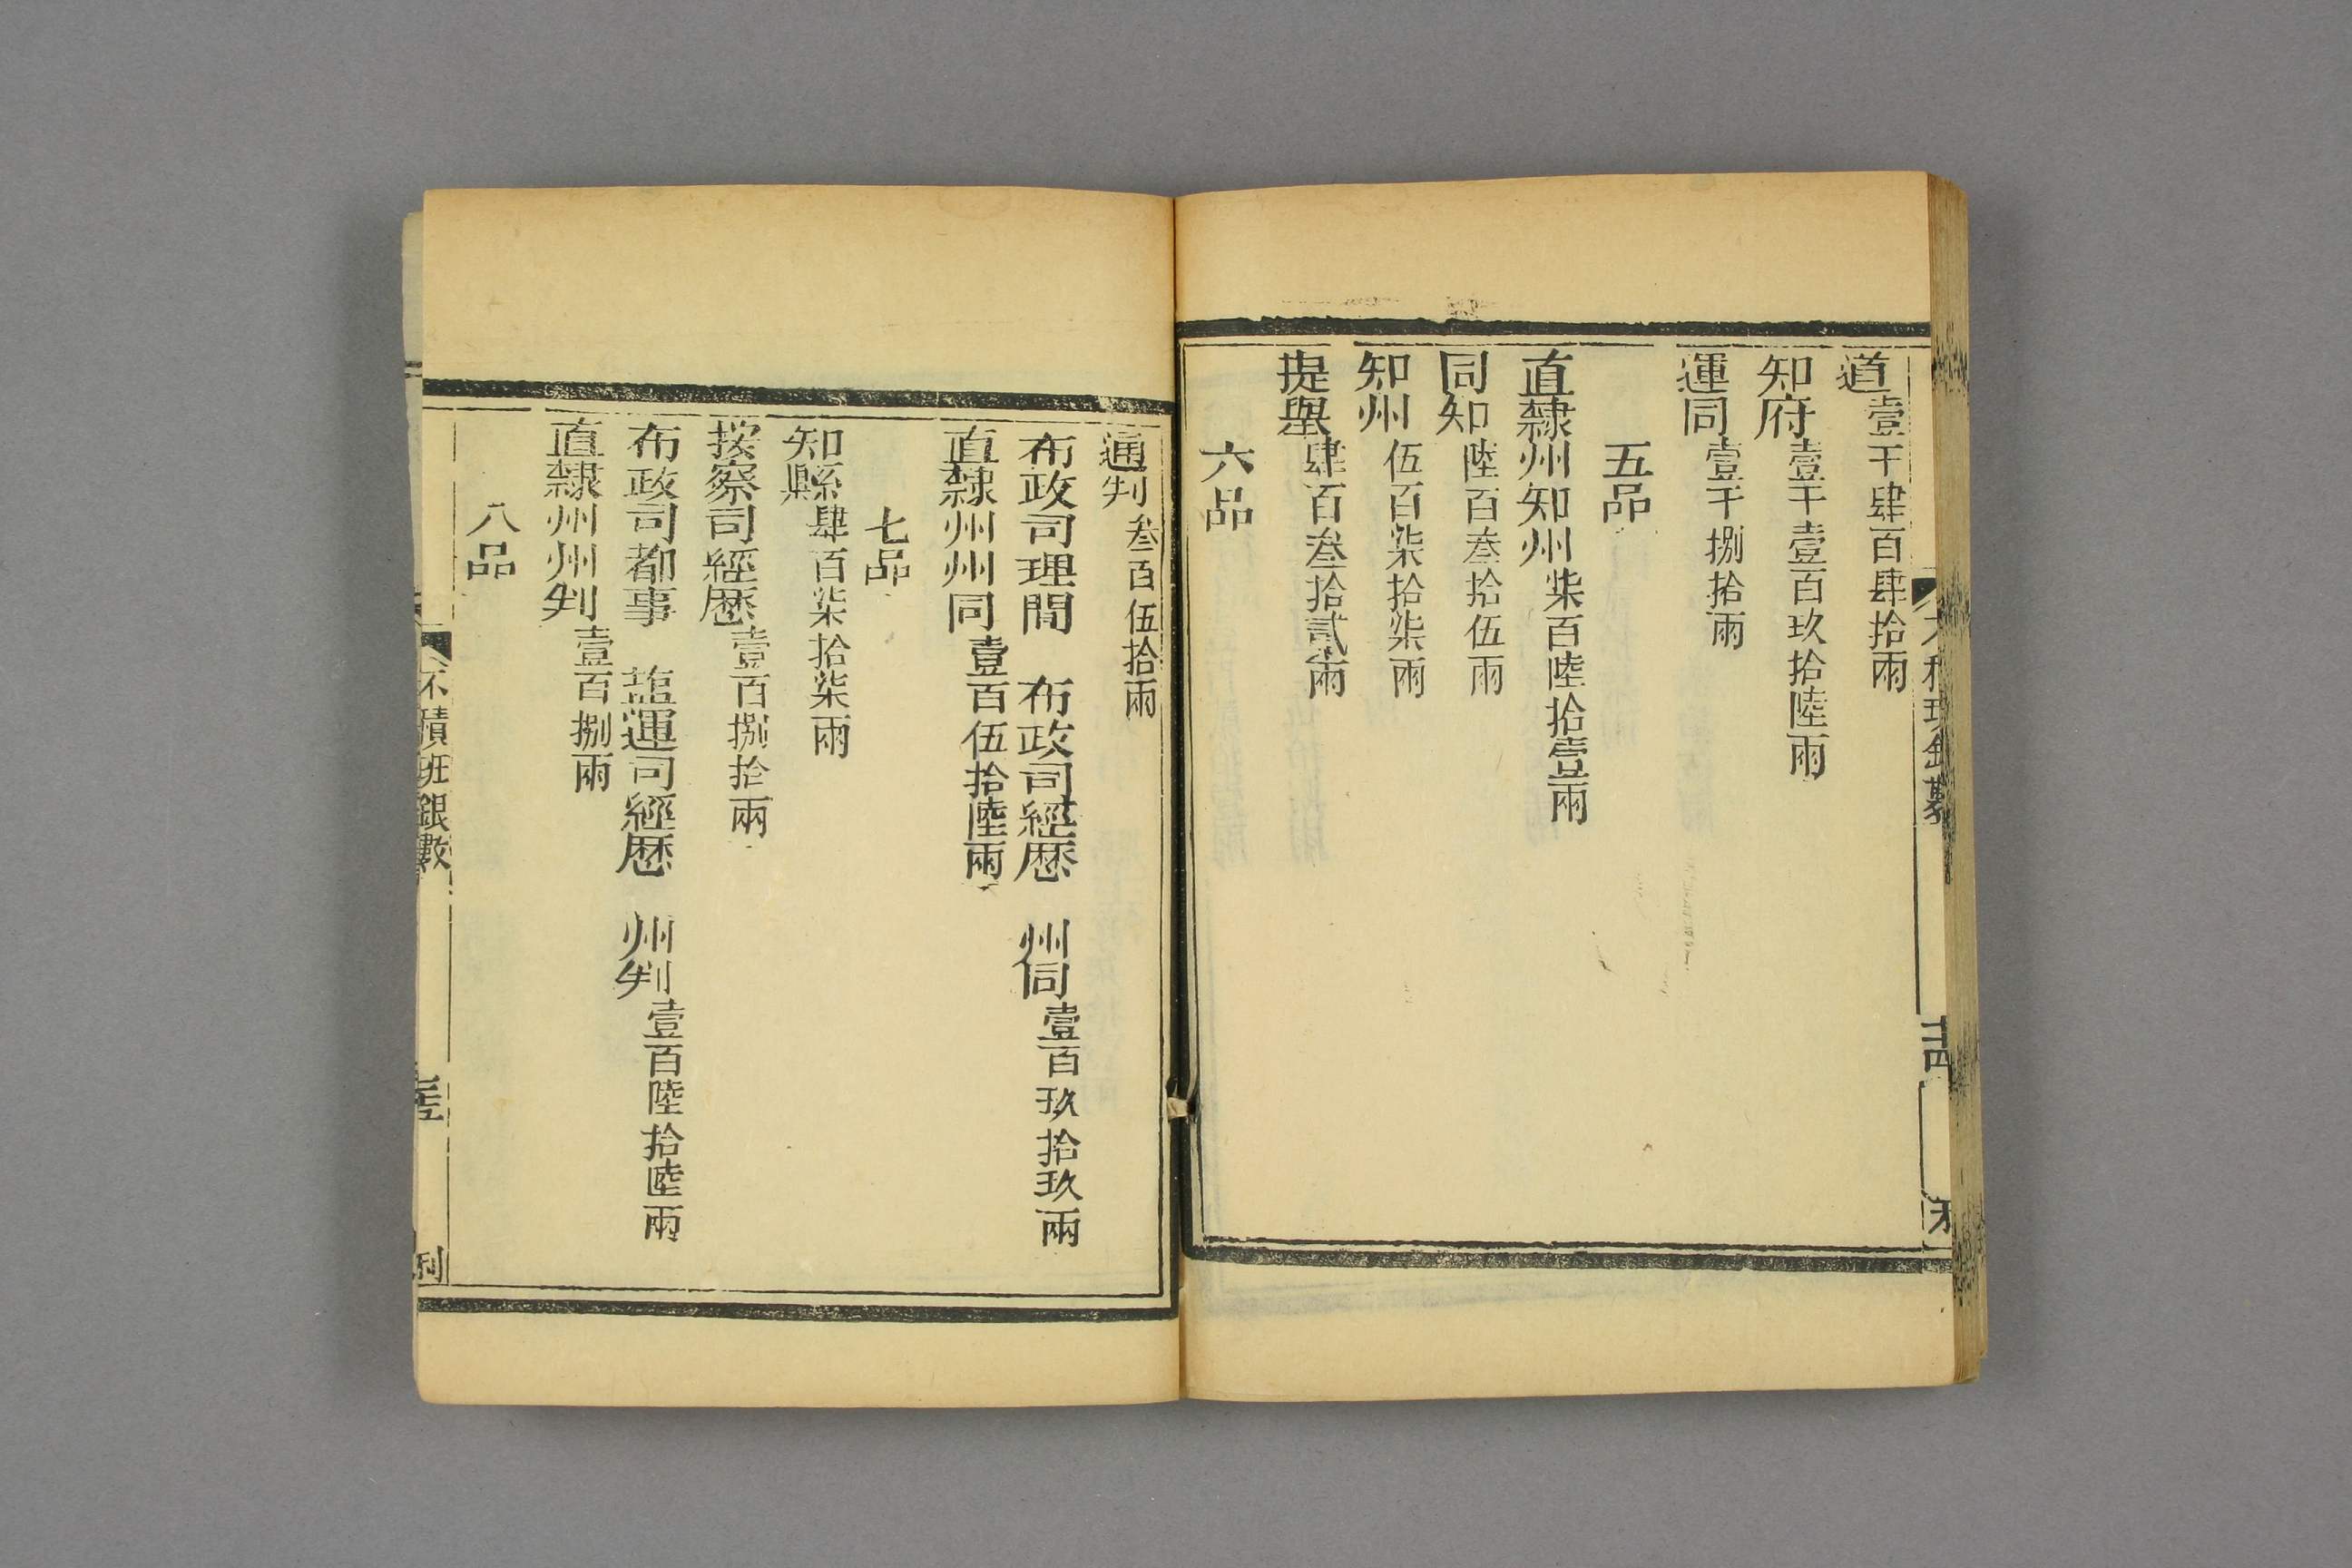 道壹千肆百肆拾兩
知府壹千壹百玖拾陸兩
運同壹千捌拾兩
五品
直隸州知州柒百陸拾壹兩
同知陸百叁拾伍兩
知州伍百柒拾柒兩
提舉肆百叁拾貳兩
六品
通判叁百伍拾兩
布政司理問 布政司經歷 州同壹百玖拾玖兩
直隸州州同壹百伍拾陸兩
七品
知縣肆百柒拾柒兩
按察司經歷壹百捌拾兩
布政司都事 塩運司經歷 州判壹百陸拾陸兩
直隸州州判壹百捌兩
八品
不積班銀數